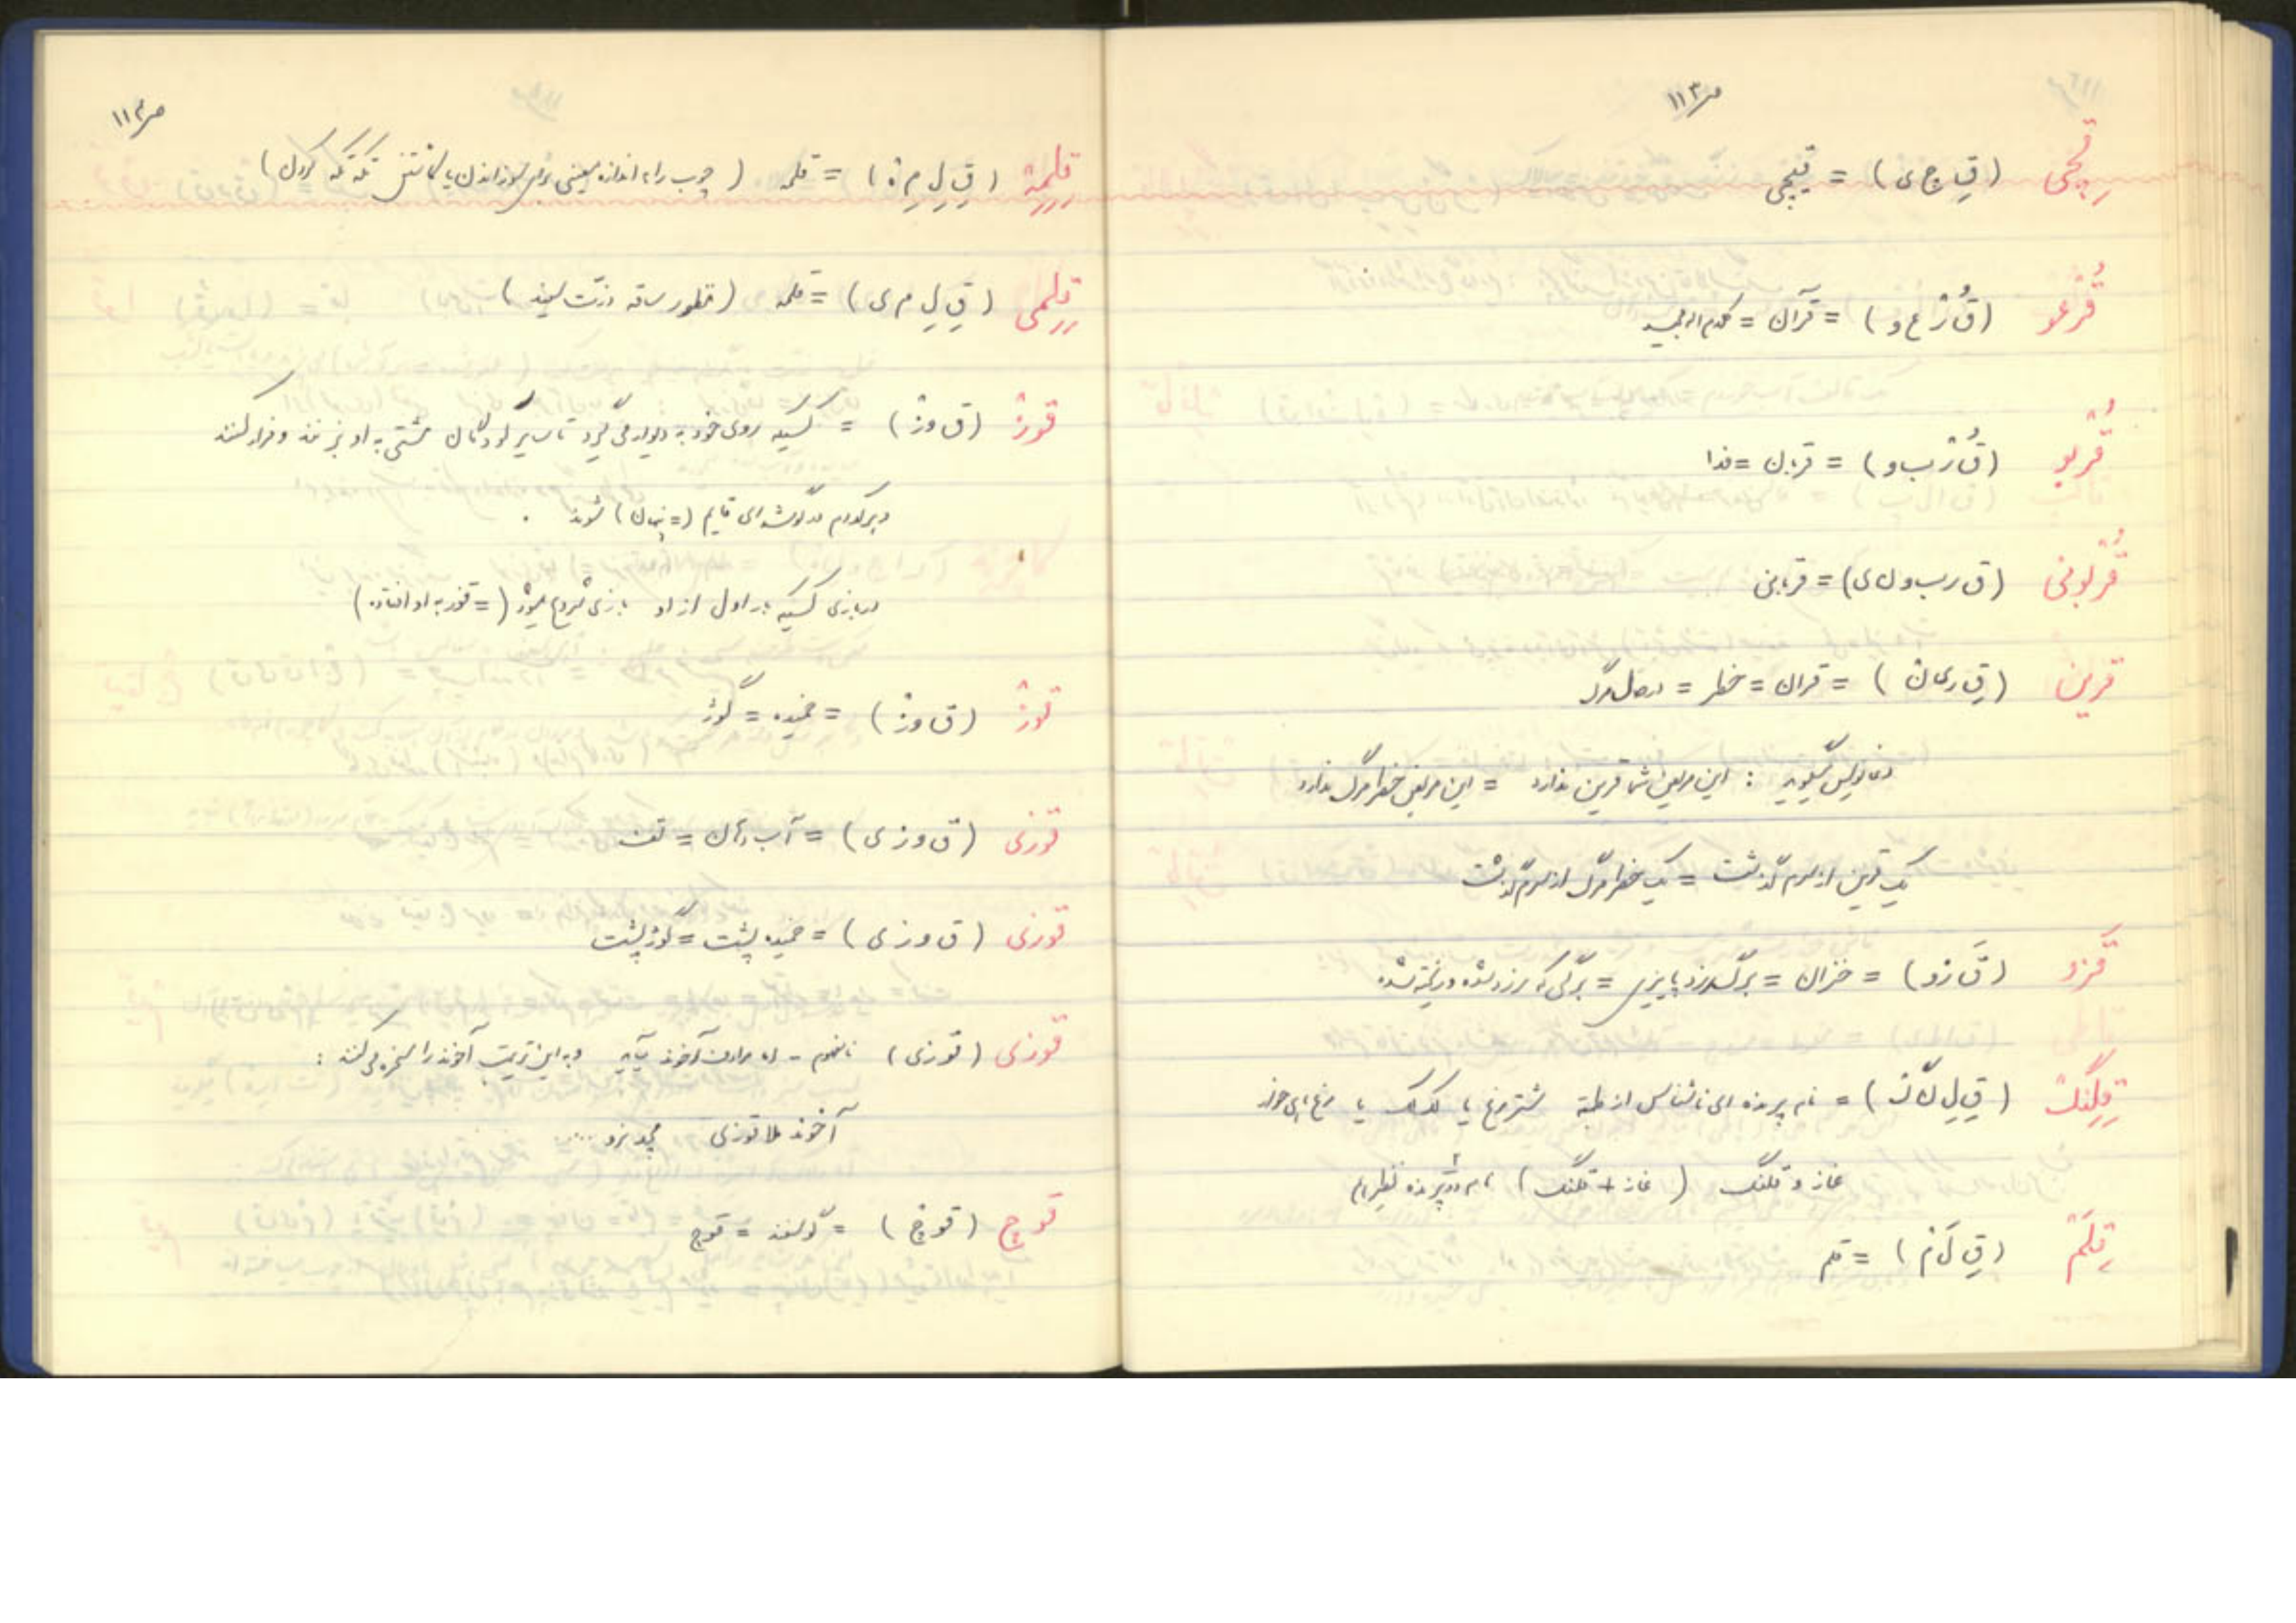 ص ۱۱۳
قِچْی (قِ چ ی) = قیچی
قُرْعو (قُ رْ ع و) = قرآن = کلام اله مجید
قُرْبو (قُ رْ ب و) = قربان = فدا
قُرْبونی (ق ر ب و ن ی) = قربانی
قرین (قِ ر ی ن) = قران = خطر = مرگ
دعانویس میگوید : این مریض شما قرین ندارد = این مریض خطر مرگ ندارد
یک قرین از سرم گذشت = یک خطر مرگ از سرم گذشت
قَزو (قَ ز و) = خزان = برگ زرد پاییزی = برگی که زرد شده و ریخته شده
قِلِنگْ (قِ لِ ن گْ) = نام پرنده ای ناشناس از طبقه شترمرغ یا لک لک یا مرغ ماهی خوار
غاز و قلنگ (غاز + قلنگ) نام دو پرنده نظیر هم
قِلَمْ (قِ لَ مْ) = قلم
ص ۱۱۴
قِلِمِهْ (قِ لِ مِ هْ) = قلمه (چوب را به اندازه معینی برای سوزاندن یا کاشتن تکه تکه کردن)
قِلِمی (قِ لِ م ی) = قلمه (قطور ساقه ذرت سفید)
قوزْ (ق و زْ) = کسیکه روی خود به دیوار می گیرد تا سایر کودکان مشتی به او بزنند و فرار کنند
و هر کدام در گوشه ای قایم (= پنهان) شوند .
در بازی کسیکه بار اول از او بازی شروع میشود (= قوز به او افتاده)
قوزْ (ق و زْ) = خمیده = گوژ
قوزی (ق و ز ی) = آب دهان = تف
قوزی (ق و ز ی) = خمیده پشت = گوژپشت
قوزی (قوزی) نامفهوم - اما مرادف آخوند بیاید و به این ترتیب آخوند را مسخره می کنند :
آخوند ملا قوزی
قوچ (قوچْ) = گوسفند = قوچ